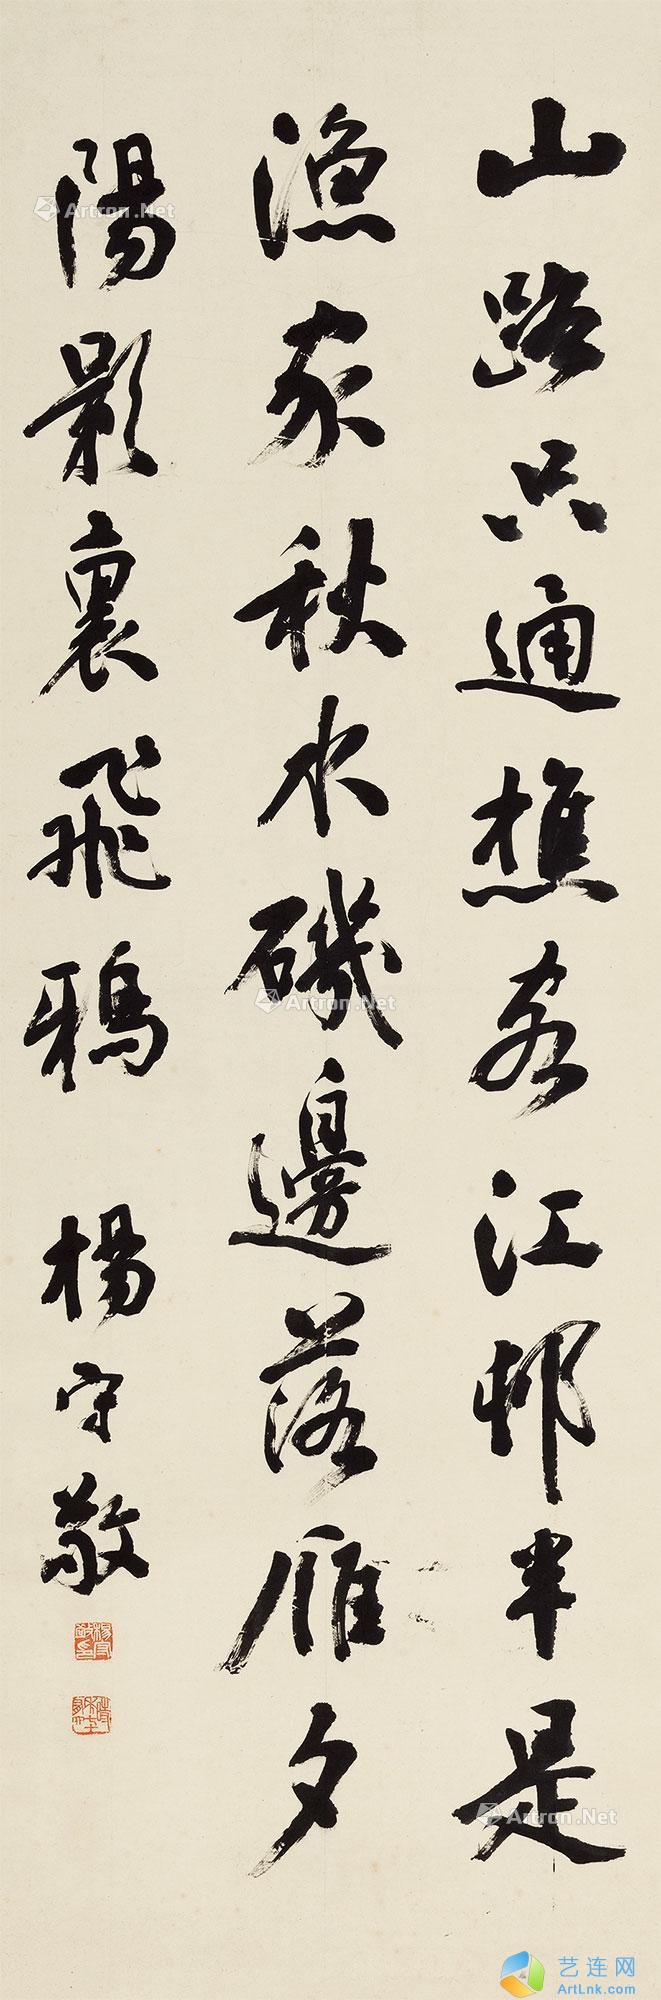 山路只通樵客江邨半是
漁家秋水磯邊落雁夕
陽影裏飛鴉 楊守敬
Artron.Net
Artron.Net
Artron.Net
Artron.Net
Artron.Net
艺连网
ArtLnk.com